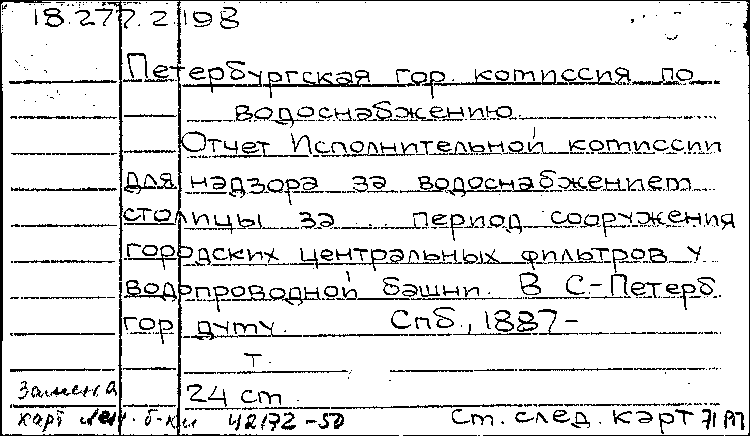 18.277.2.198
Петербургская гор. комиссия по
водоснабжению.
Отчет Исполнительной комиссии
для надзора за водоснабжением
столицы за период сооружения
городских центральных фильтров у
водопроводной башни. В С-Петерб.
гор думу. Спб., 1887-
т.
Замена 24 см
карт Лен. б-ки 42172-50 См. след. карт